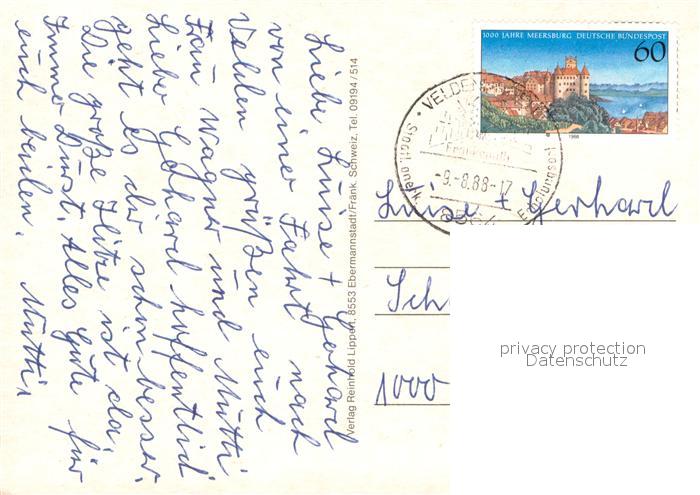 Liebe Luise + Gerhard
von einer Fahrt nach
Velden grüßen euch
Frau Wagner und Mutti
Liebe Gerhard hoffentlich
geht es dir schon besser.
Die große Hitze ist da,
Immer Durst. Alles Gute für
euch beiden. Mutti
Verlag Reinhold Lippert, 8553 Ebermannstadt/Fränk. Schweiz, Tel. 09194/514
1000 JAHRE MEERSBURG DEUTSCHE BUNDESPOST
60
1988
VELDEN
-9.-8.88-17
Luise + Gerhard
Sch
1000
privacy protection
Datenschutz